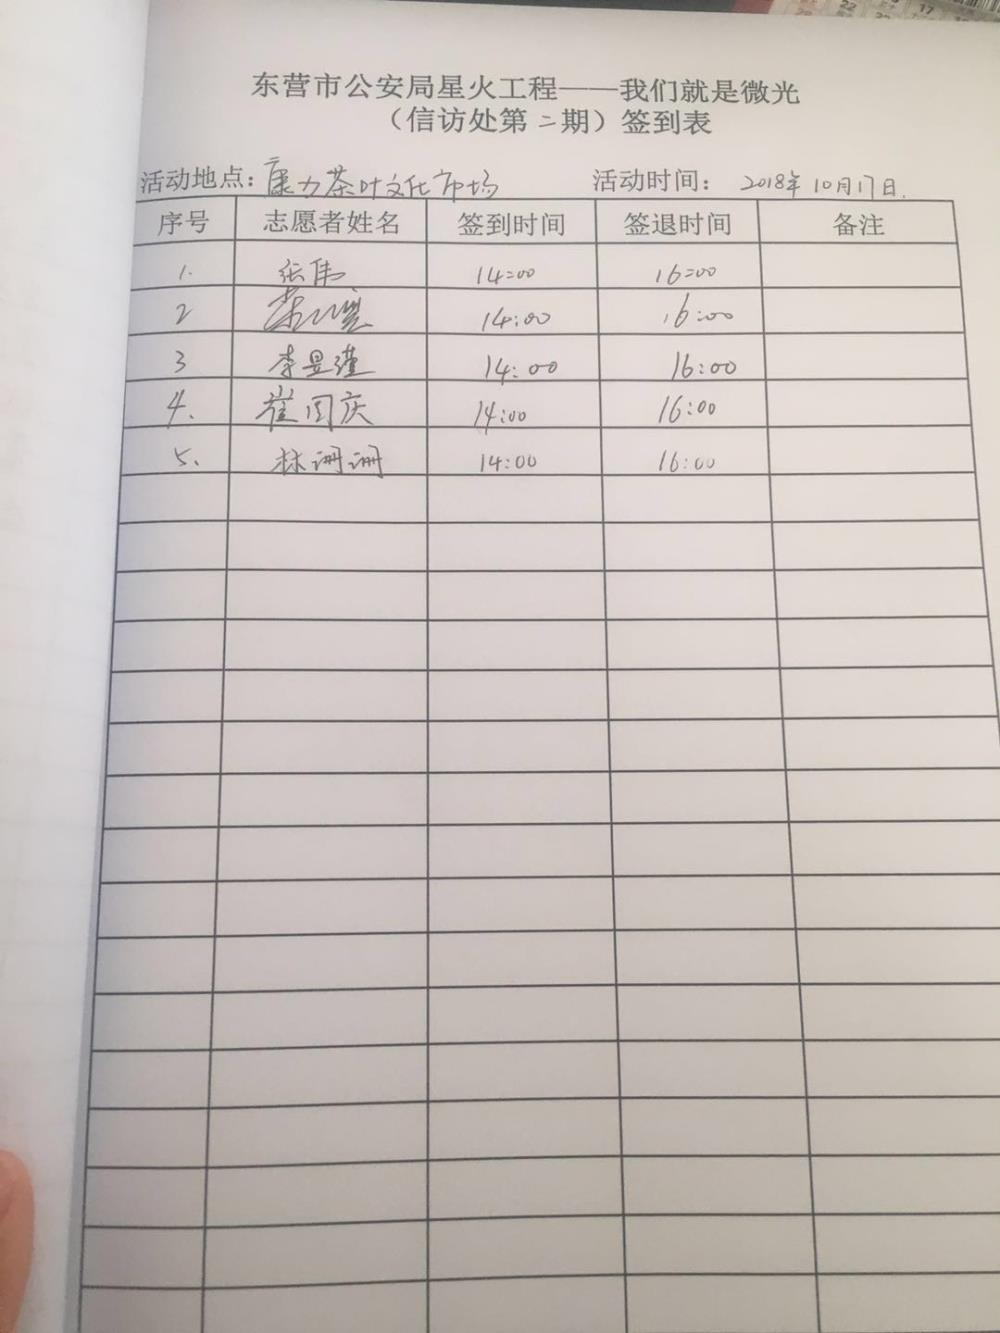 东营市公安局星火工程——我们就是微光
（信访处第二期）签到表
活动地点：康力茶叶文化市场 活动时间：2018年10月17日.
序号 志愿者姓名 签到时间 签退时间 备注
1. 张伟 14:00 16:00
2 14:00 16:00
3 李昱瑾 14:00 16:00
4. 崔国庆 14:00 16:00
5. 林珊珊 14:00 16:00